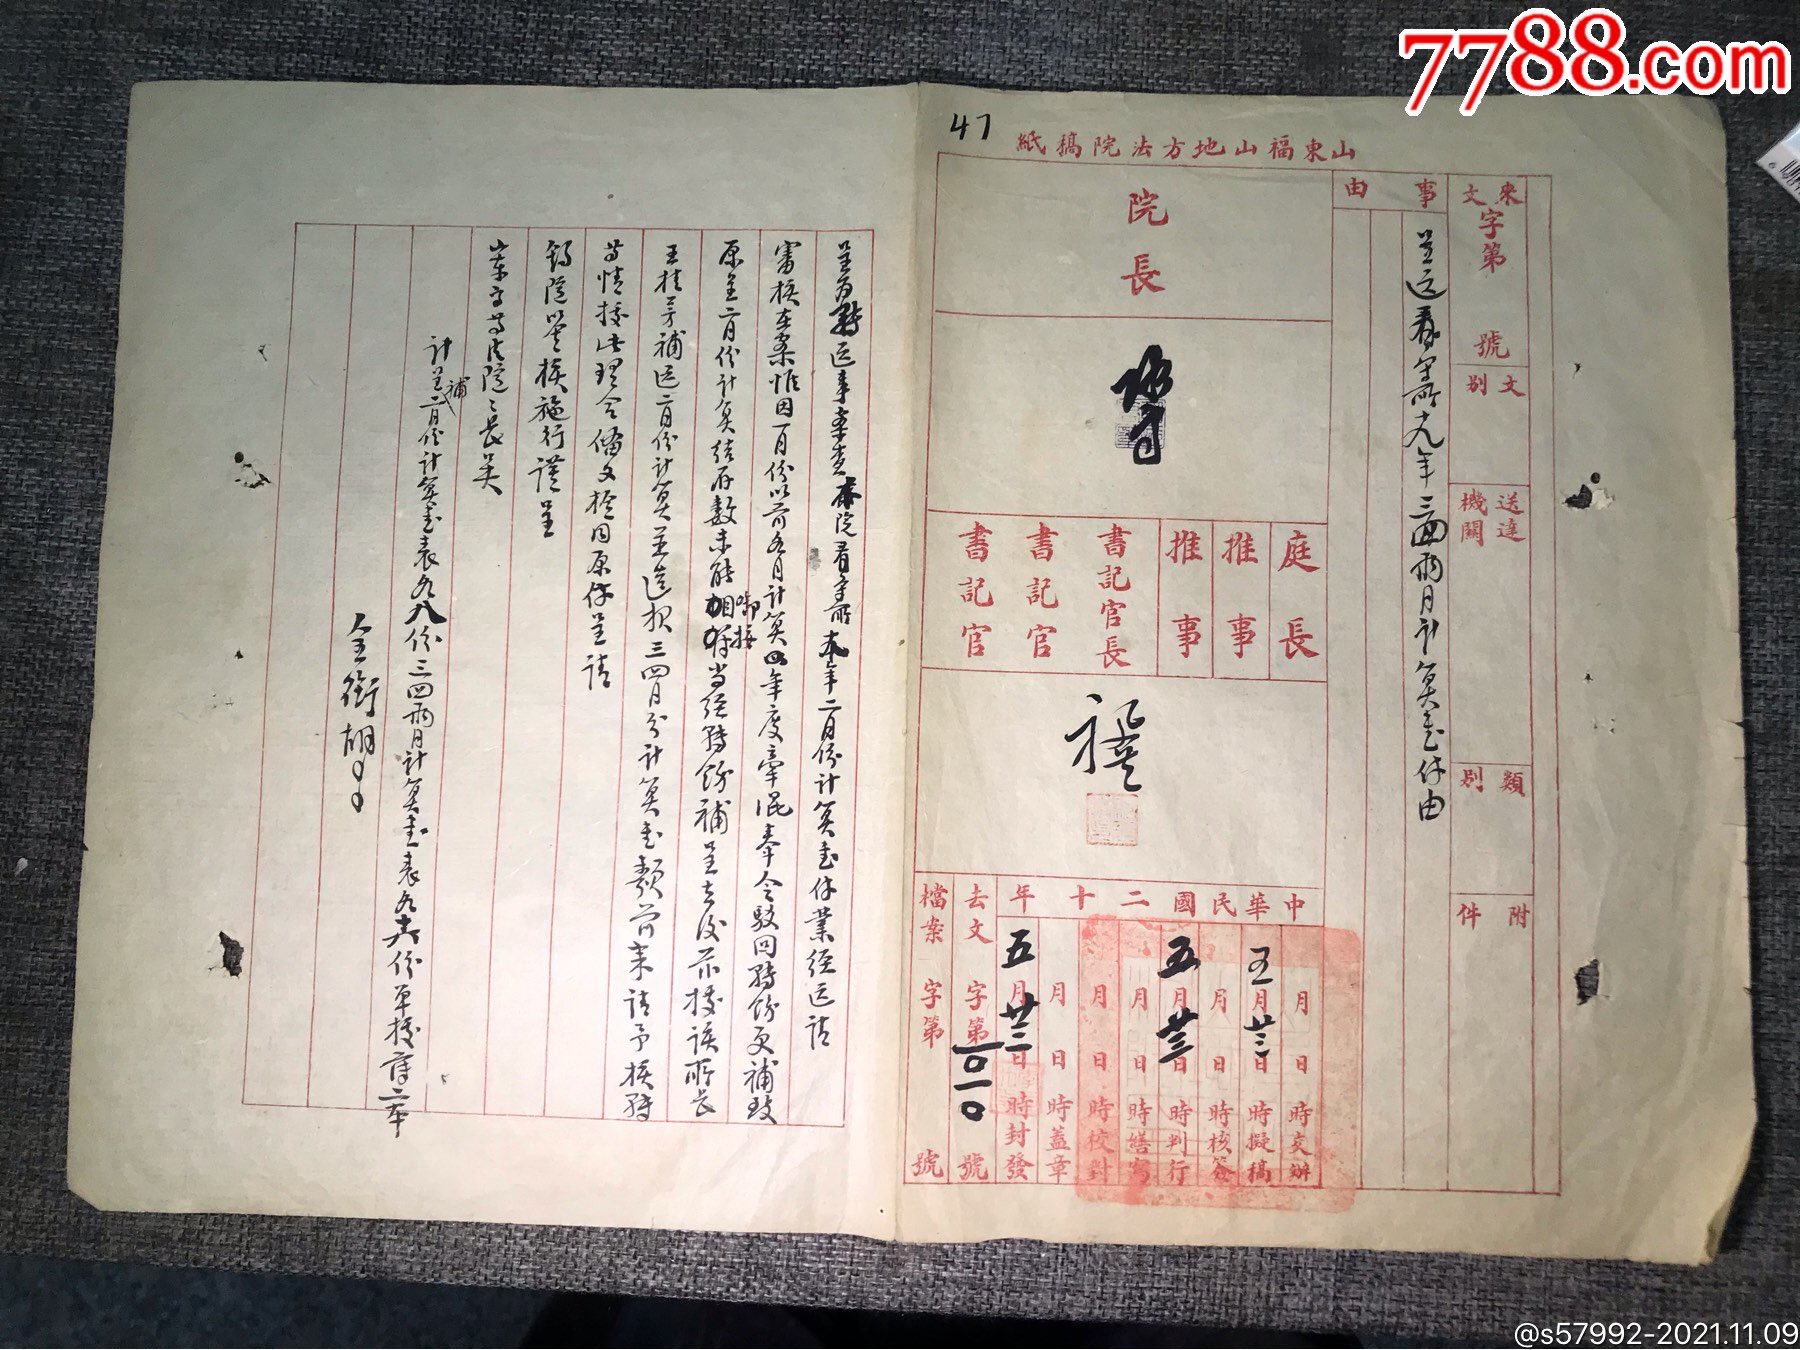 7788.com
47
山東福山地方法院稿紙
來文 字第 號
文別
送達機關
類別
附件
事由
呈送看守所十九年三四兩月計算書件由
院長
庭長
推事
推事
書記官長
書記官
書記官
中華民國二十年
月 日 時交辦
五月廿三日 時擬稿
月 日 時核簽
五月廿三日 時判行
月 日 時繕寫
月 日 時校對
月 日 時蓋章
五月廿三日 時封發
去文 字第一〇一〇號
檔案 字第 號
呈為轉送事案查本院看守所本年二月份計算書件業經送請
審核在案惟因一月份以前各月計算四年度牽混奉令駁回轉飭更補致
原呈二月份計算結存數未能啣接當經轉飭補呈去後茲據該所長
王桂芳補送二月份計算並造報三四月分計算書類前來請予核轉
等情據此理合備文檢同原件呈請
鈞院鑒核施行謹呈
山東高等法院院長吳
計呈補二月份計算書表各八份三四兩月計算書表各六份單據簿二本
全銜胡
@s57992-2021.11.09